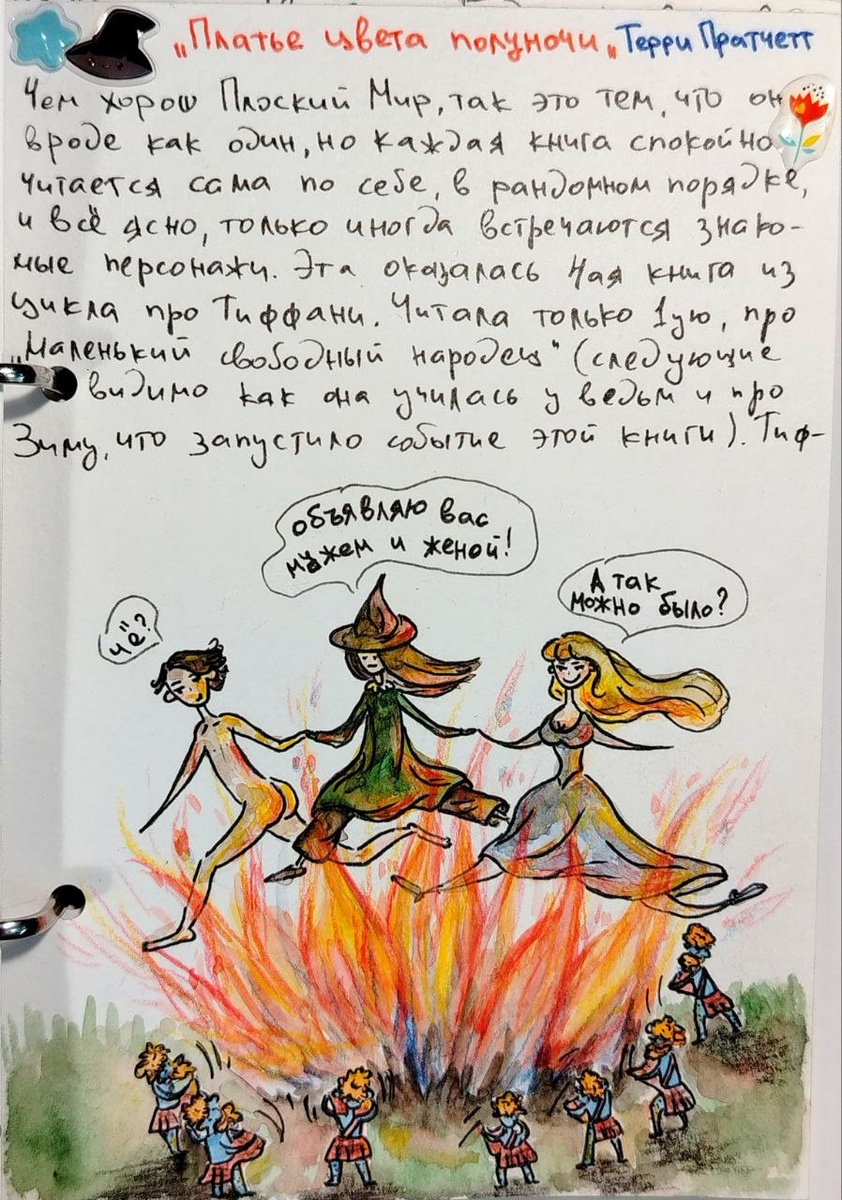 „Платье цвета полуночи„ Терри Пратчетт
Чем хорош Плоский Мир, так это тем, что он
вроде как один, но каждая книга спокойно
читается сама по себе, в рандомном порядке,
и всё ясно, только иногда встречаются знако-
мые персонажи. Эта оказалась 4ая книга из
цикла про Тиффани. Читала только 1ую, про
„Маленький свободный народец" (следующие
видимо как она училась у ведьм и про
Зиму, что запустило событие этой книги). Тиф-
объявляю вас
мужем и женой!
А так
можно было?
чё?